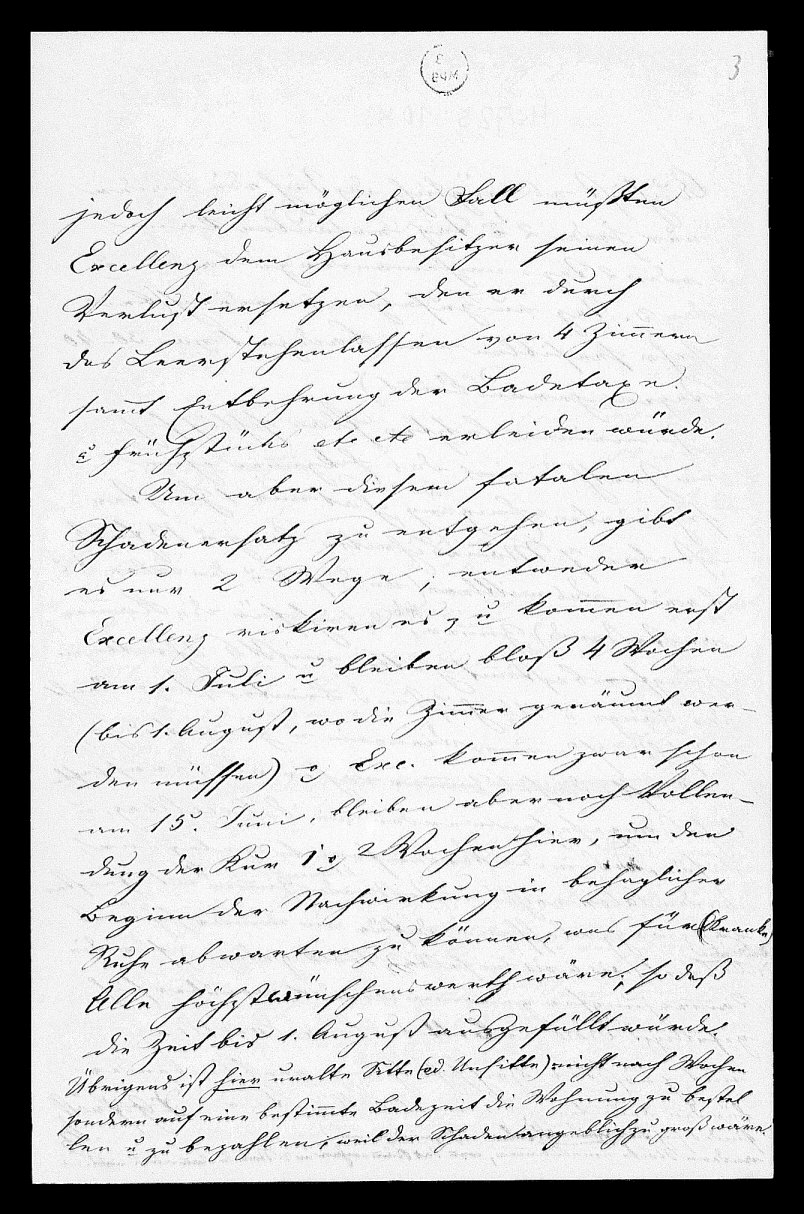 3
jedoch leicht möglichen Fall müßten
Excellenz dem Hausbesitzer seinen
Verlust ersetzen, den er durch
das Leerstehenlassen von 4 Zimmern
sammt Entbehrung der Badetaxe.
u Frühstücks etc etc erleiden würde.
Um aber diesem fatalen
Schadenersatz zu entgehen, gibt
es nur 2 Wege, entweder
Excellenz riskiren es, u kommen erst
am 1. Juli u bleiben bloß 4 Wochen
(bis 1. August, wo die Zimmer geräumt wer-
den müssen) o Exc. kommen zwar schon
am 15. Juni, bleiben aber noch Vollen-
dung der Kur 1 o 2 Wochen hier, um den
Beginn der Nachwirkung in behaglicher
Ruhe abwarten zu können, was für (Kranke)
Alle höchst wünschenswerth wäre, so daß
die Zeit bis 1. August ausgefüllt würde.
Übrigens ist hier uralte Sitte (od. Unsitte) nicht nach Wochen
sondern auf eine bestimmte Badezeit die Wohnung zu bestel
len u zu bezahlen, weil der Schaden angeblich zu groß wäre.